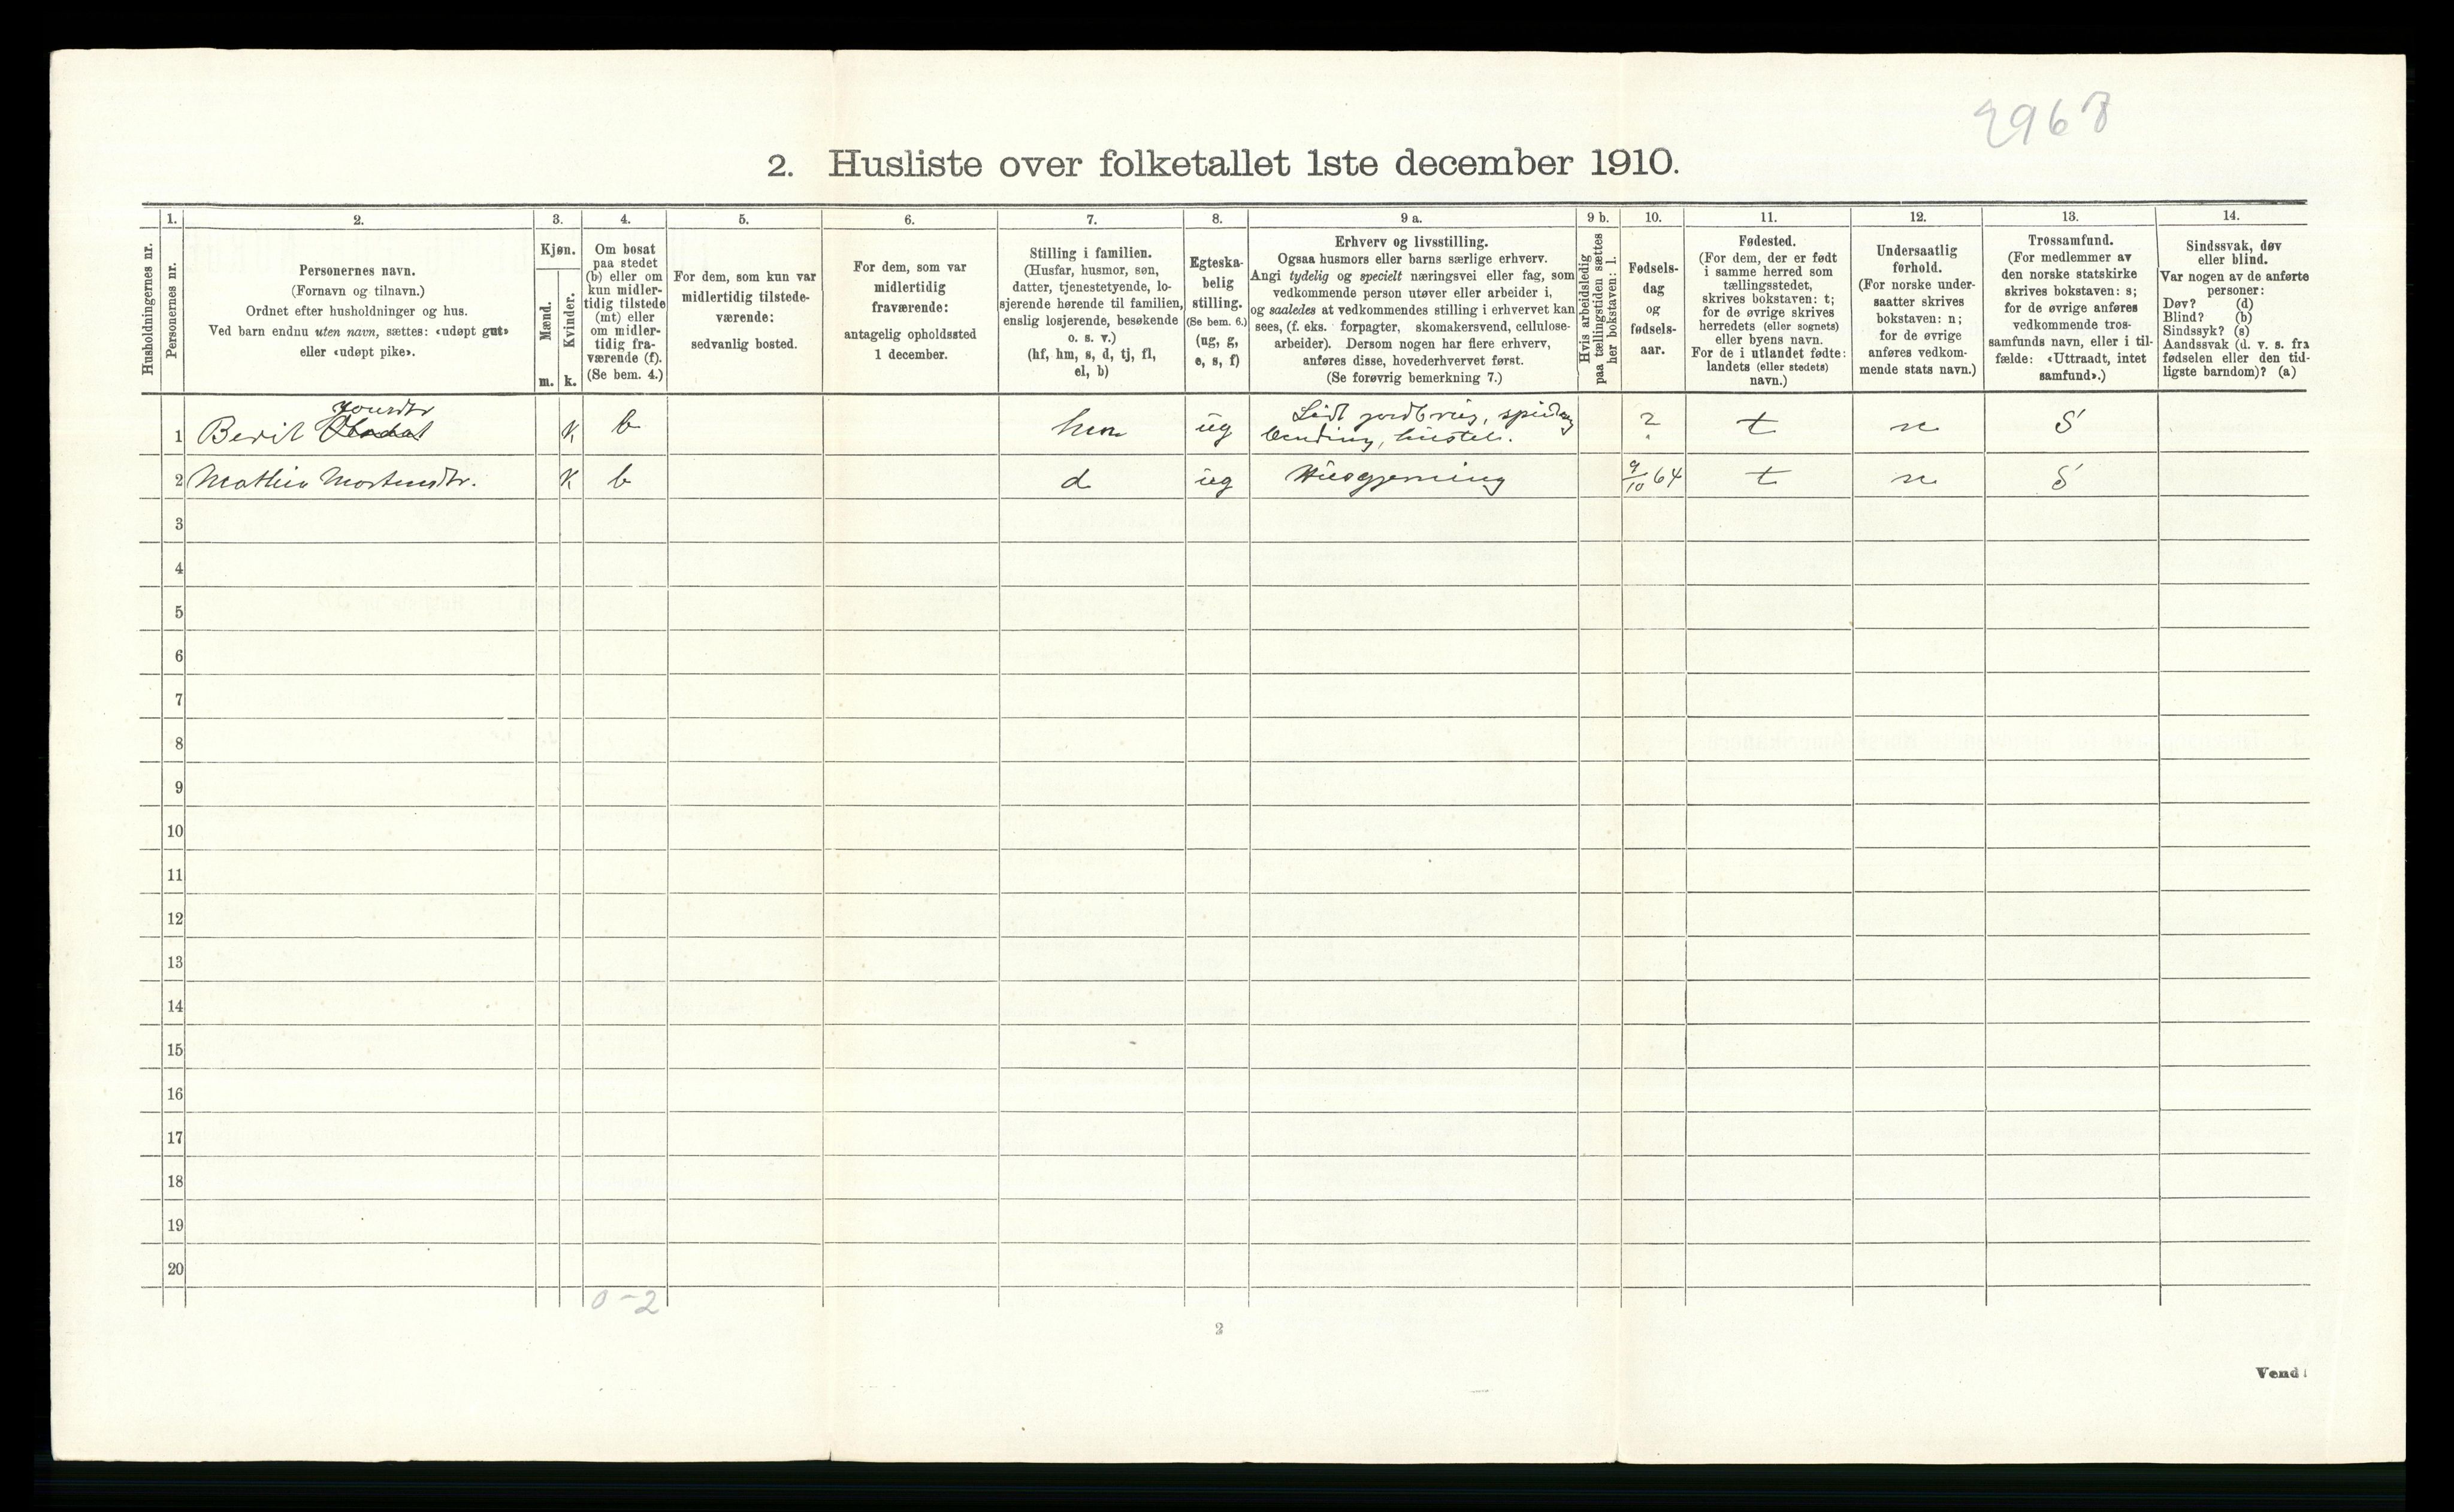 2968
2. Husliste over folketallet 1ste december 1910.
Husholdningernes nr.
1.
Personernes nr.
2.
Personernes navn.
(Fornavn og tilnavn.)
Ordnet efter husholdninger og hus.
Ved barn endnu uten navn, sættes: «udøpt gut»
eller «udøpt pike».
3.
Kjøn.
Mænd.
Kvinder.
m. k.
4.
Om bosat
paa stedet
(b) eller om
kun midler-
tidig tilstede
(mt) eller
om midler-
tidig fra-
værende (f).
(Se bem. 4.)
5.
For dem, som kun var
midlertidig tilstede-
værende:
sedvanlig bosted.
6.
For dem, som var
midlertidig
fraværende:
antagelig opholdssted
1 december.
7.
Stilling i familien.
(Husfar, husmor, søn,
datter, tjenestetyende, lo-
sjerende hørende til familien,
enslig losjerende, besøkende
o. s. v.)
(hf, hm, s, d, tj, fl,
el, b)
8.
Egteska-
belig
stilling.
(Se bem. 6.)
(ug, g,
e, s, f)
9 a.
Erhverv og livsstilling.
Ogsaa husmors eller barns særlige erhverv.
Angi tydelig og specielt næringsvei eller fag, som
vedkommende person utøver eller arbeider i,
og saaledes at vedkommendes stilling i erhvervet kan
sees, (f. eks. forpagter, skomakersvend, cellulose-
arbeider). Dersom nogen har flere erhverv,
anføres disse, hovederhvervet først.
(Se forøvrig bemerkning 7.)
9 b.
Hvis arbeidsledig
paa tællingstiden sættes
her bokstaven: l.
10.
Fødsels-
dag
og
fødsels-
aar.
11.
Fødested.
(For dem, der er født
i samme herred som
tællingsstedet,
skrives bokstaven: t;
for de øvrige skrives
herredets (eller sognets)
eller byens navn.
For de i utlandet fødte:
landets (eller stedets)
navn.)
12.
Undersaatlig
forhold.
(For norske under-
saatter skrives
bokstaven: n;
for de øvrige
anføres vedkom-
mende stats navn.)
13.
Trossamfund.
(For medlemmer av
den norske statskirke
skrives bokstaven: s;
for de øvrige anføres
vedkommende tros-
samfunds navn, eller i til-
fælde: «Uttraadt, intet
samfund».)
14.
Sindssvak, døv
eller blind.
Var nogen av de anførte
personer:
Døv? (d)
Blind? (b)
Sindssyk? (s)
Aandssvak (d. v. s. fra
fødselen eller den tid-
ligste barndom)? (a)
1 Berit K b hm ug ? t n S
2 Mathia Mortensdtr. K b d ug Husgjerning 9/10 64 t n S
3
4
5
6
7
8
9
10
11
12
13
14
15
16
17
18
19
20
0 - 2
2
Vend!